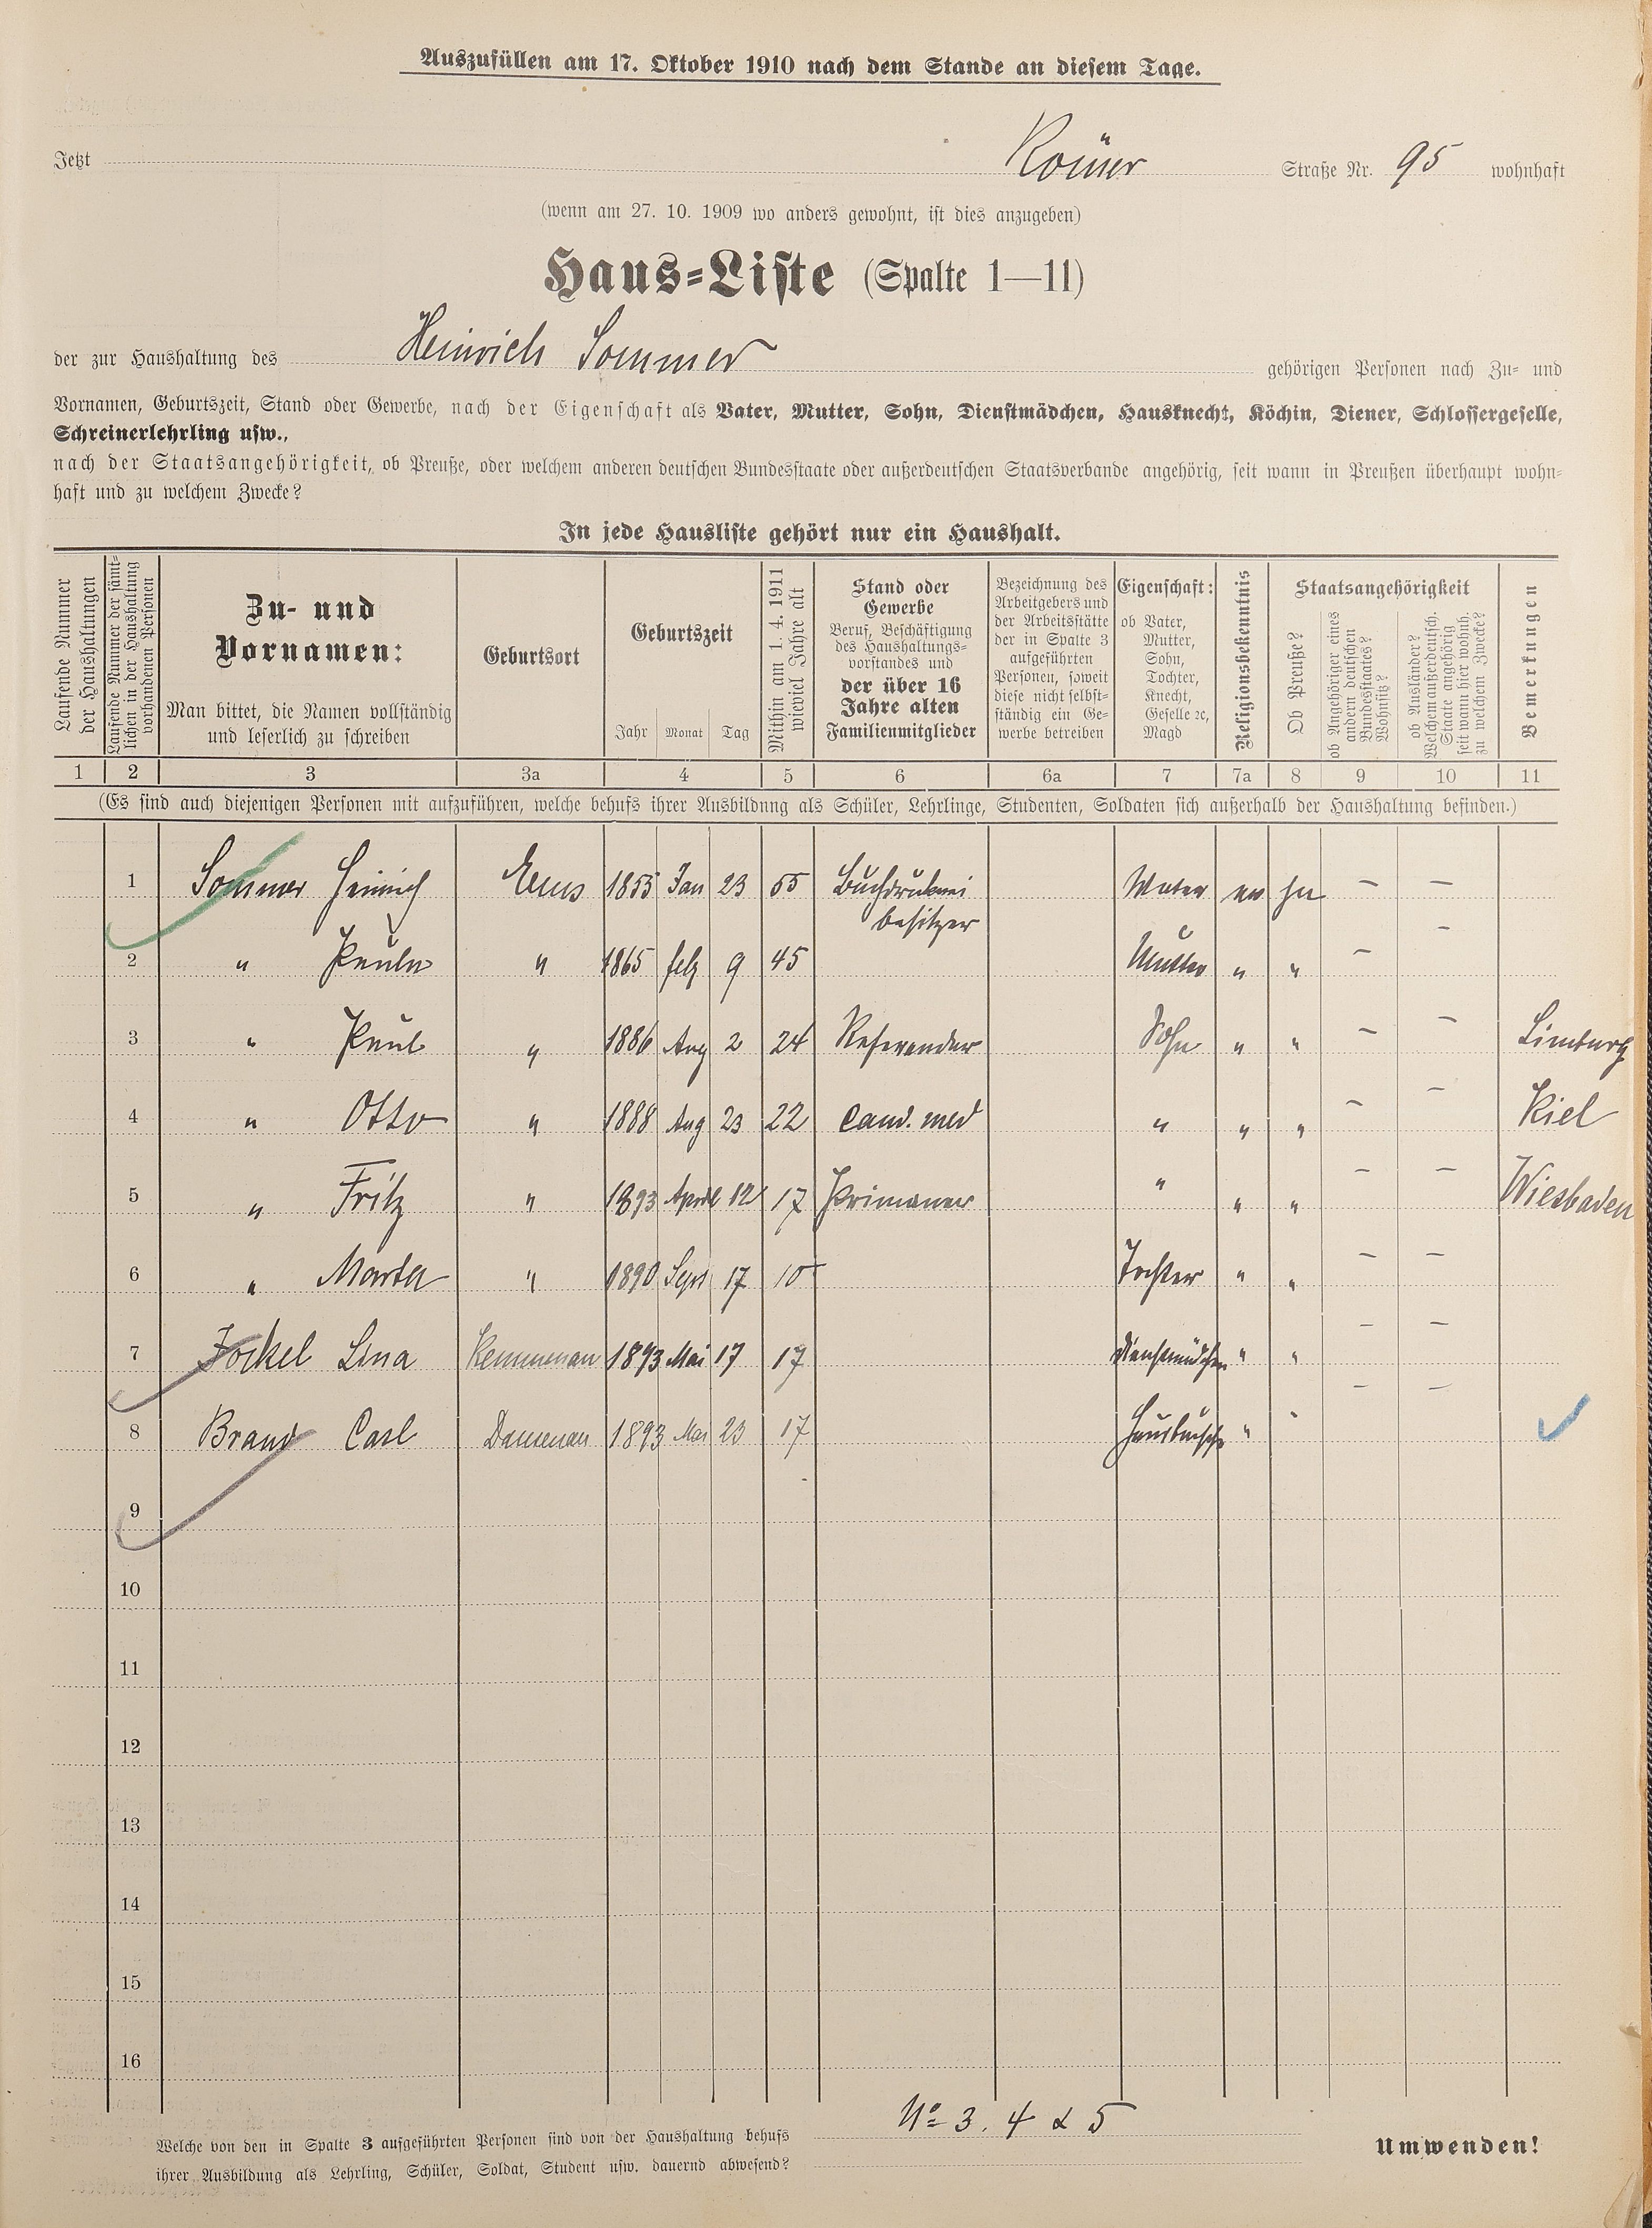 Auszufüllen am 17. Oktober 1910 nach dem Stande an diesem Tage.
Jetzt Römer Straße Nr. 95 wohnhaft
(wenn am 27. 10. 1909 wo anders gewohnt, ist dies anzugeben)
Haus-Liste (Spalte 1—11)
der zur Haushaltung des Heinrich Sommer gehörigen Personen nach Zu- und
Vornamen, Geburtszeit, Stand oder Gewerbe, nach der Eigenschaft als Vater, Mutter, Sohn, Dienstmädchen, Hausknecht, Köchin, Diener, Schlossergeselle,
Schreinerlehrling usw.,
nach der Staatsangehörigkeit, ob Preuße, oder welchem anderen deutschen Bundesstaate oder außerdeutschen Staatsverbande angehörig, seit wann in Preußen überhaupt wohn-
haft und zu welchem Zwecke?
In jede Hausliste gehört nur ein Haushalt.
Laufende Nummer
der Haushaltungen
Laufende Nummer der sämt-
lichen in der Haushaltung
vorhandenen Personen
Zu- und
Vornamen:
Man bittet, die Namen vollständig
und leserlich zu schreiben
Geburtsort
Geburtszeit
Jahr Monat Tag
Mithin am 1. 4. 1911
wieviel Jahre alt
Stand oder
Gewerbe
Beruf, Beschäftigung
des Haushaltungs-
vorstandes und
der über 16
Jahre alten
Familienmitglieder
Bezeichnung des
Arbeitgebers und
der Arbeitsstätte
der in Spalte 3
aufgeführten
Personen, soweit
diese nicht selbst-
ständig ein Ge-
werbe betreiben
Eigenschaft:
ob Vater,
Mutter,
Sohn,
Tochter,
Knecht,
Geselle ꝛc,
Magd
Religionsbekenntnis
Staatsangehörigkeit
Ob Preuße?
ob Angehöriger eines
andern deutschen
Bundesstaates?
Wohnsitz?
ob Ausländer?
Welchem außerdeutsch.
Staate angehörig
seit wann hier wohnh.
zu welchem Zwecke?
Bemerkungen
1 2 3 3a 4 5 6 6a 7 7a 8 9 10 11
(Es sind auch diejenigen Personen mit aufzuführen, welche behufs ihrer Ausbildung als Schüler, Lehrlinge, Studenten, Soldaten sich außerhalb der Haushaltung befinden.)
1 Sommer Heinrich Ems 1855 Jan 23 55 Buchdruckerei Vater ev ja — —
besitzer
2 " Paula " 1865 feb 9 45 Mutter " " — —
3 " Paul " 1886 Aug 2 24 Referendar Sohn " " — — Limburg
4 " Otto " 1888 Aug 23 22 Cand. med " " " — — Kiel
5 " Fritz " 1893 April 12 17 Primaner " " " — — Wiesbaden
6 " Marta " 1890 Sept 17 10 Tochter " " — —
7 Lina Kemmenau 1893 Mai 17 17 Dienstmädchen " " — —
8 Brand Carl Dausenau 1893 Mai 23 17 Hausbursche " " — —
9
10
11
12
13
14
15
16
Welche von den in Spalte 3 aufgeführten Personen sind von der Haushaltung behufs
ihrer Ausbildung als Lehrling, Schüler, Soldat, Student usw. dauernd abwesend?
No 3. 4 & 5
Umwenden!